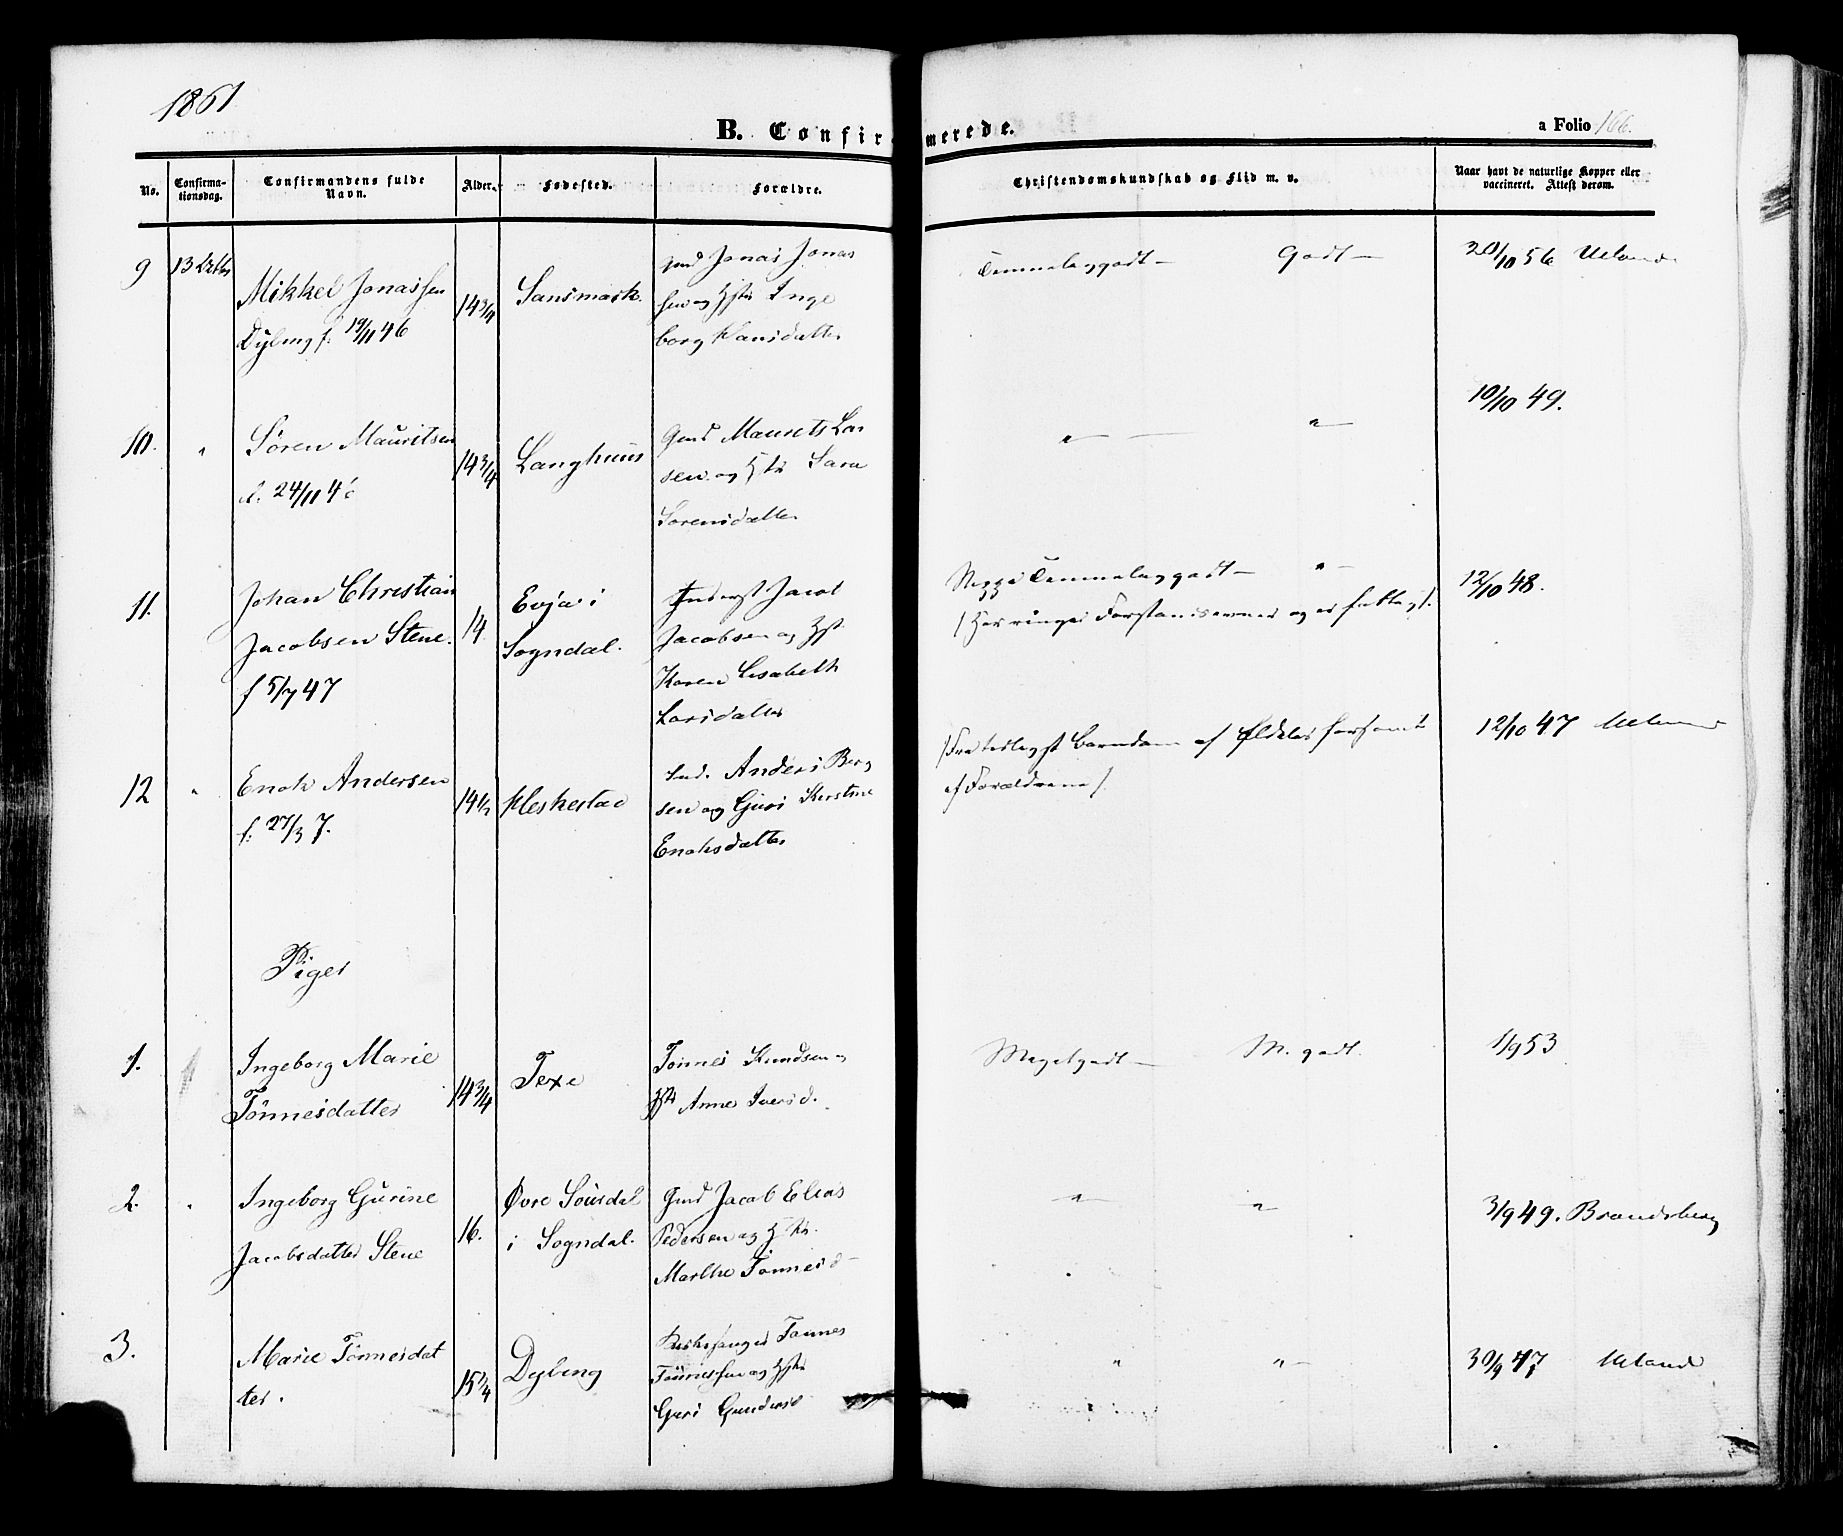 1861
B. Confirmerede.
a Folio 166.
No.
Confirma-
tionsdag.
Confirmandens fulde
Navn.
Alder.
Fødested.
Forældre.
Christendomskundskab og Flid m. v.
Naar havt de naturlige Kopper eller
vaccineret. Attest derom.
9
13 Octbr
Mikkel Jonassen
Dybing f. 19/11 46
14 3/4
Sansmark.
Gmd Jonas Jonas
sen og Hstr Inge
borg Hansdatter
Temmelig godt —
Godt —
20/10 56 Ueland
10.
"
Sören Mauritsen
f. 24/11 46
14 3/4
Langhuus
Gmd Maurits Lar
sen og Hstr Sara
Sorensdatter
" —
" —
10/10 49.
11.
Johan Christian
Jacobsen Stene.
f 5/7 47
14
Evja i
Sogndal.
Inderst Jacob
Jacobsen og Hst.
Karen Lisabeth
Larsdatter
Neppe Temmelig godt —
" —
/Har ringe Forstandsevner og er
12/10 48.
12
"
Enok Andersen
f. 27/3 7.
14 1/2
Heskestad
Anders Berg
sen og Guri Kirstine
Enoksdatter
/Fra tidligst Barndom af
af Forældrene/.
12/10 47
Piger
1.
Ingeborg Marie
Tönnesdatter
14 3/4
Texe
Tönnes Knudsen og
Hstr Anne Iversd.
Meget godt —
M. godt.
1/9 53
2.
"
Ingeborg Gurine
Jacobsdatter Stene
16.
Øvre Sousdal
i Sogndal.
Gmd Jacob Elias
Pedersen og Hstr.
Marthe Tönnesd —
" —
" —
3/9 49. Brandsberg
3.
Marie Tönnesdat
ter.
15 1/4
Dybing
Tönnes
Tönnessen og Hstr
Guri Gundersd
"
" —
30/9 47 Ueland